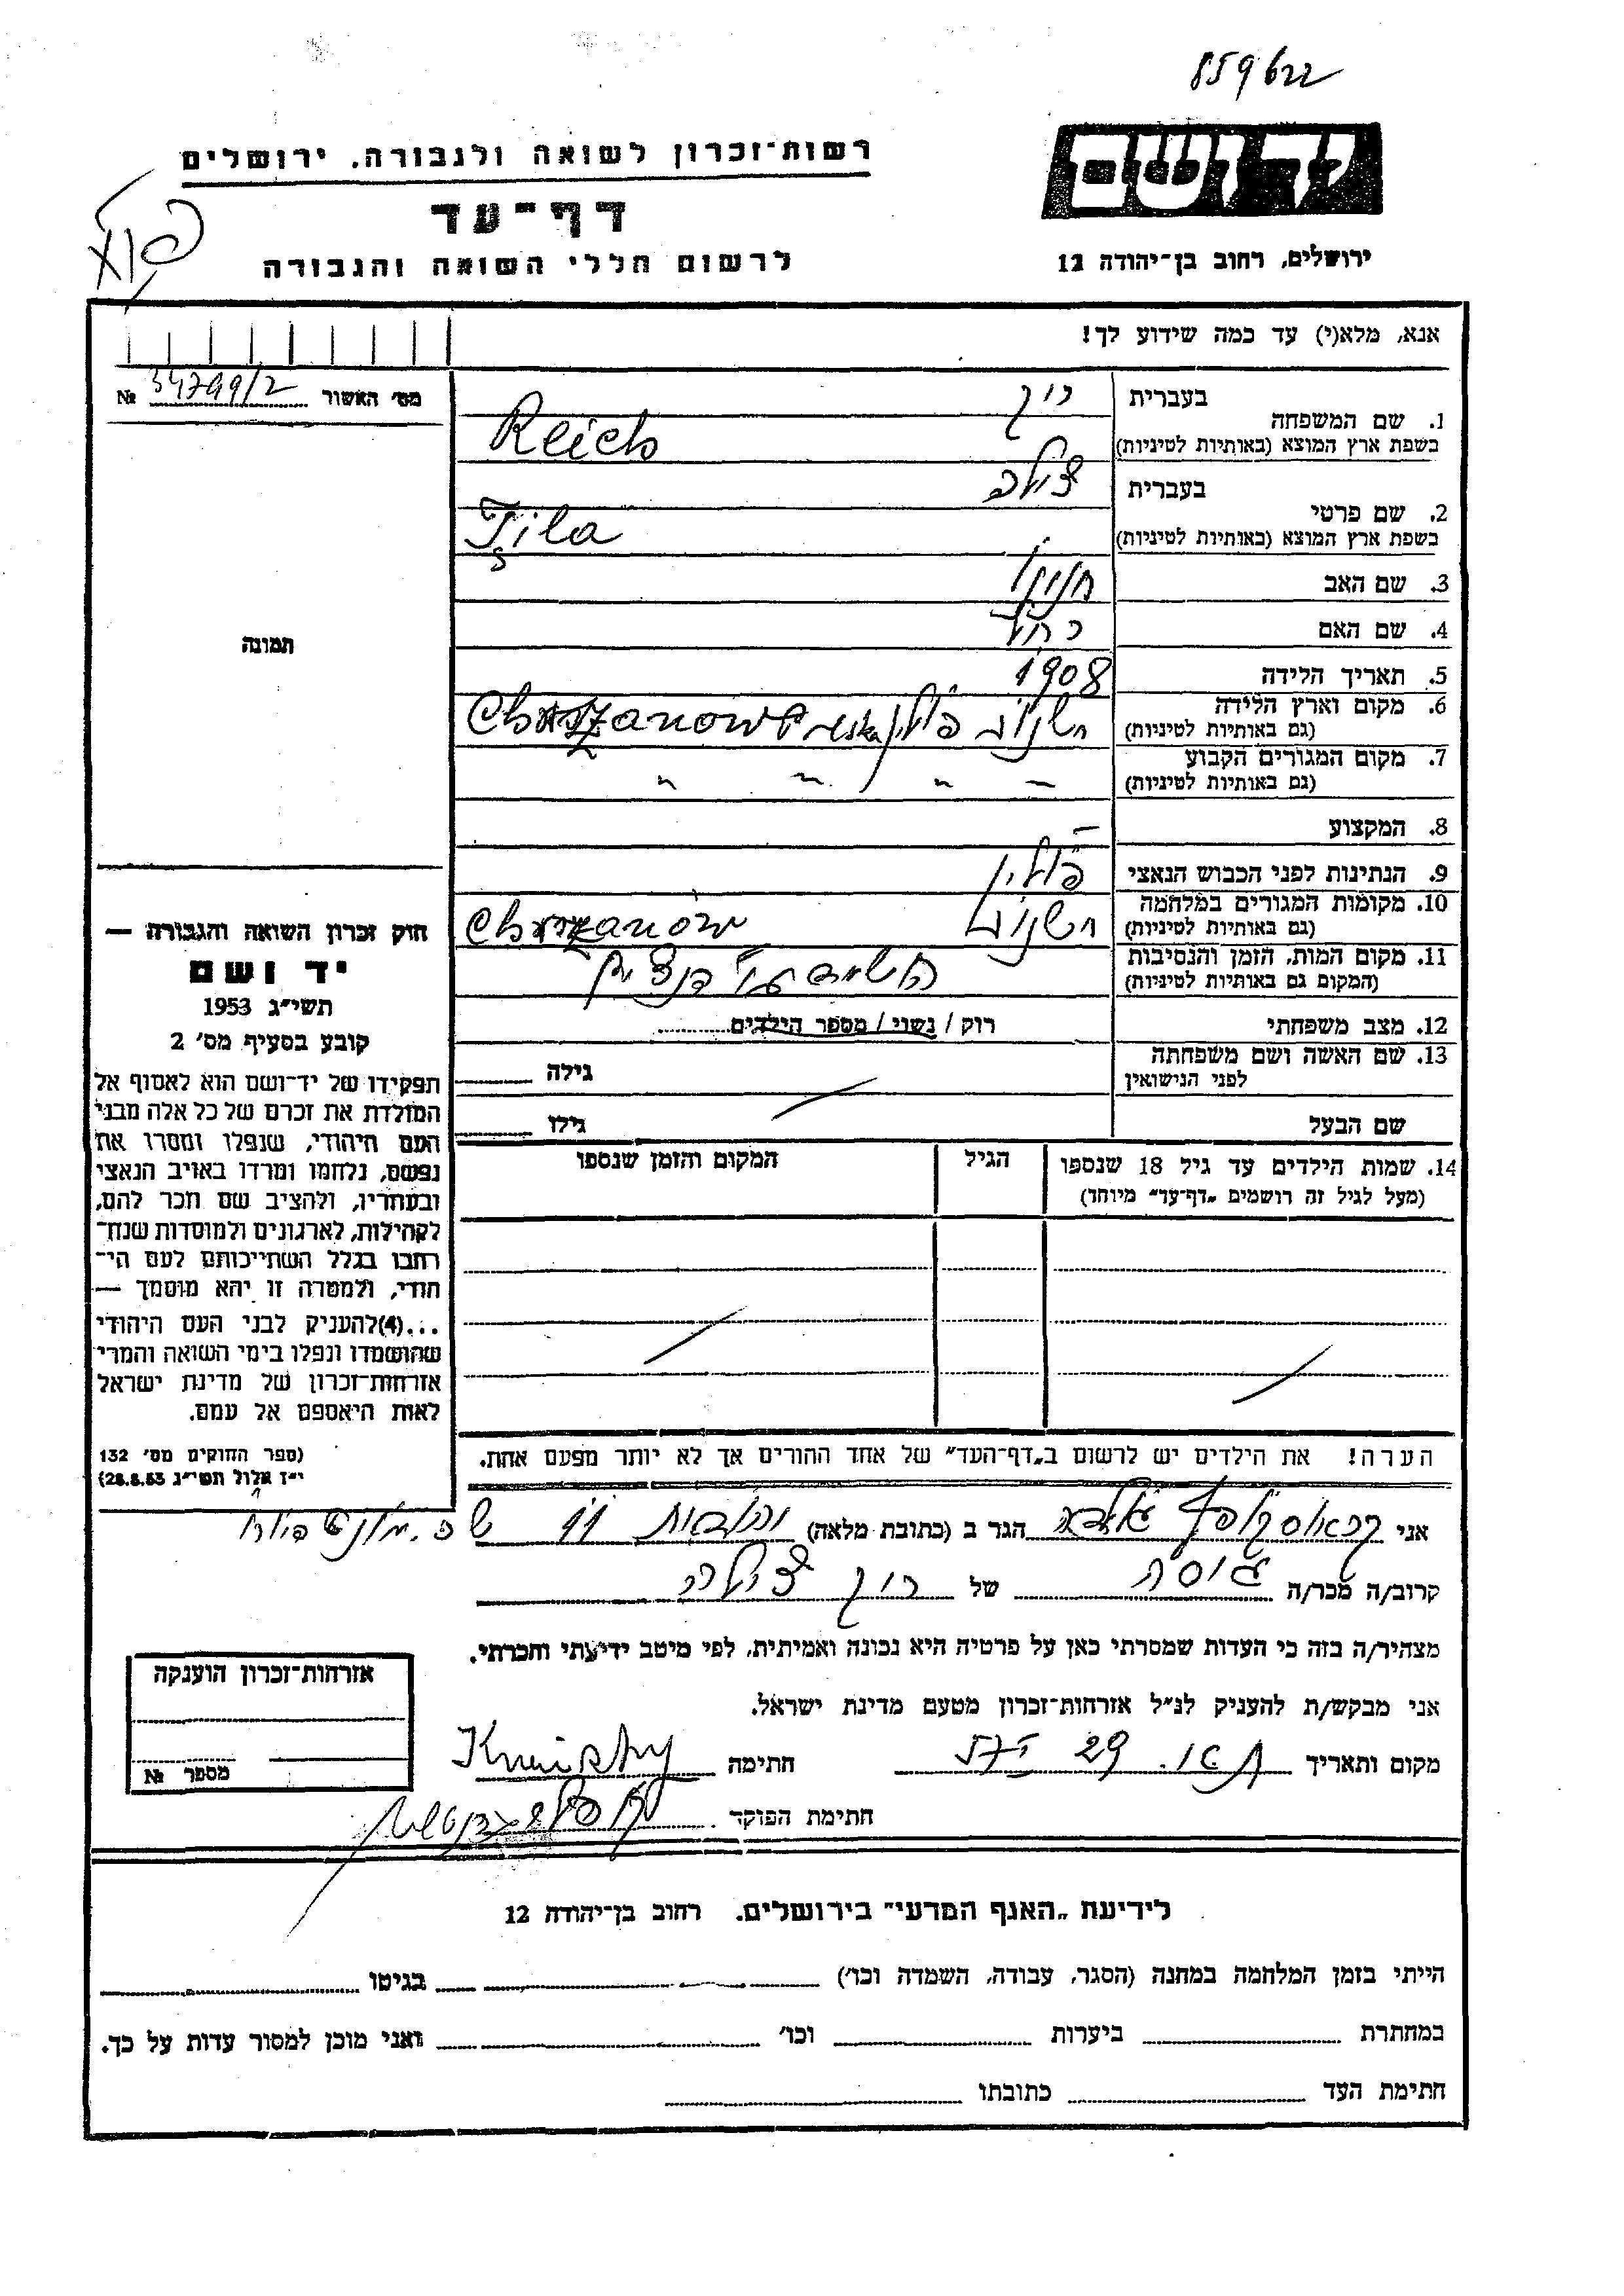 859622
יד ושם
רשות-זכרון לשואה ולגבורה. ירושלים
דף-עד
לרשום חללי השואה והגבורה
ירושלים, רחוב בן-יהודה 12
אנא, מלא(י) עד כמה שידוע לך!
מס' האשור 34799/2 №
תמונה
1. שם המשפחה
בעברית רייך
בשפת ארץ המוצא (באותיות לטיניות) Reich
2. שם פרטי
בעברית צילה
בשפת ארץ המוצא (באותיות לטיניות) Tila
3. שם האב
4. שם האם רחל
5. תאריך הלידה 1908
6. מקום וארץ הלידה
(גם באותיות לטיניות) חשנוב פולין Chrzanow
7. מקום המגורים הקבוע
(גם באותיות לטיניות) " " " –
8. המקצוע –
9. הנתינות לפני הכבוש הנאצי פולין
10. מקומות המגורים במלחמה
(גם באותיות לטיניות) חשנוב Chrzanow
11. מקום המות, הזמן והנסיבות
(המקום גם באותיות לטיניות) הושמדה ע"י הנצים
12. מצב משפחתי רוק / נשוי / מספר הילדים
13. שם האשה ושם משפחתה
לפני הנישואין
גילה
שם הבעל
גילו
14. שמות הילדים עד גיל 18 שנספו
(מעל לגיל זה רושמים „דף-עד" מיוחד)
הגיל
המקום והזמן שנספו
חוק זכרון השואה והגבורה —
יד ושם
תשי״ג 1953
קובע בסעיף מס' 2
תפקידו של יד-ושם הוא לאסוף אל
המולדת את זכרם של כל אלה מבני
העם היהודי, שנפלו ומסרו את
נפשם, נלחמו ומרדו באויב הנאצי
ובעוזריו, ולהציב שם וזכר להם,
לקהילות, לארגונים ולמוסדות שנח-
רבו בגלל השתייכותם לעם הי-
הודי, ולמטרה זו יהא מוסמך —
...(4)להעניק לבני העם היהודי
שהושמדו ונפלו בימי השואה והמרי
אזרחות-זכרון של מדינת ישראל
לאות היאספם אל עמם.
(ספר החוקים מס' 132
י״ז אלול תשי״ג 28.8.53)
הערה! את הילדים יש לרשום ב„דף-העד" של אחד ההורים אך לא יותר מפעם אחת.
אני הגר ב (כתובת מלאה)
קרוב/ה מכר/ה גיסה של רייך צילה
מצהיר/ה בזה כי העדות שמסרתי כאן על פרטיה היא נכונה ואמיתית, לפי מיטב ידיעתי והכרתי.
אני מבקש/ת להעניק לנ״ל אזרחות-זכרון מטעם מדינת ישראל.
מקום ותאריך חתימה
חתימת הפוקד
אזרחות-זכרון הוענקה
מספר №
לידיעת „האגף המדעי" בירושלים. רחוב בן-יהודה 12
הייתי בזמן המלחמה במחנה (הסגר, עבודה, השמדה וכו') בגיטו
במחתרת ביערות וכו' ואני מוכן למסור עדות על כך.
חתימת העד כתובתו